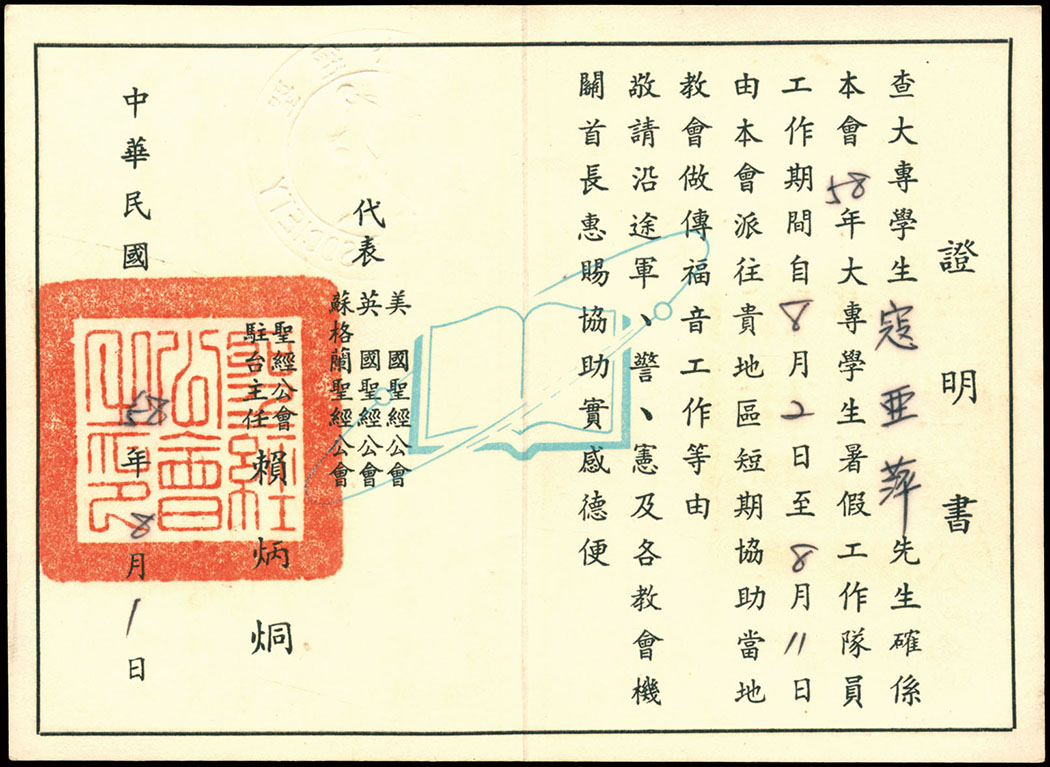 證明書
查大專學生寇亞萍先生確係
本會58年大專學生暑假工作隊員
工作期間自8月2日至8月11日
由本會派往貴地區短期協助當地
教會做傳福音工作等由
敬請沿途軍、警、憲及各教會機
關首長惠賜協助實感德便
代表
美國聖經公會
英國聖經公會
蘇格蘭聖經公會
聖經公會
駐台主任
賴炳烔
聖經公會之印
中華民國58年8月1日
SOCIETY